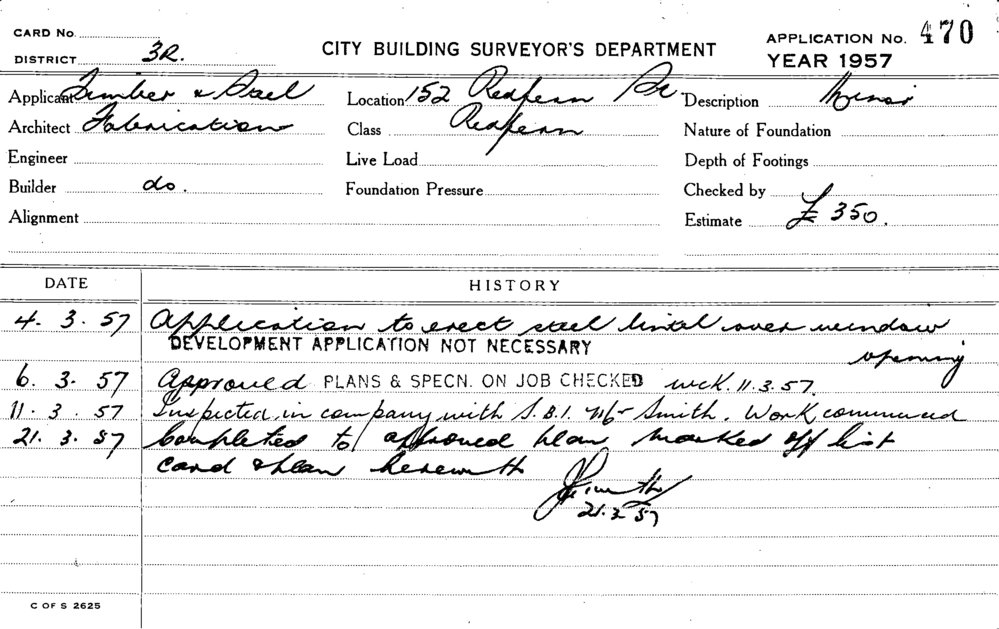 CARD No.
DISTRICT 3R.
CITY BUILDING SURVEYOR'S DEPARTMENT
APPLICATION No. 470
YEAR 1957
Applicant Timber & Steel Location 152 Redfern St Description Minor
Architect Fabrication Class Redfern Nature of Foundation
Engineer Live Load Depth of Footings
Builder do. Foundation Pressure Checked by
Alignment Estimate £ 350.
DATE HISTORY
4. 3. 57 Application to erect steel lintel over window
opening
DEVELOPMENT APPLICATION NOT NECESSARY
6. 3. 57 Approved PLANS & SPECN. ON JOB CHECKED wck. 11.3.57.
11. 3. 57 Inspected in company with S.B.I. Mr Smith. Work commenced
21. 3. 57 Completed to approved plan marked off list
card & plan herewith
21.3.57
C OF S 2625